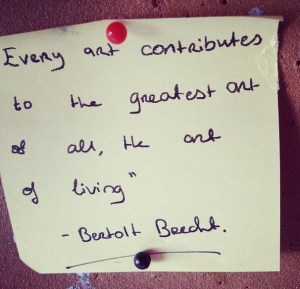 Every art contributes
to the greatest art
of all, the art
of living"
- Bertolt Brecht.